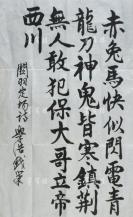 赤兔馬快似閃電青
龍刀神鬼皆寒鎮荆
無人敢犯保大哥立帝
西川
關羽定場詩